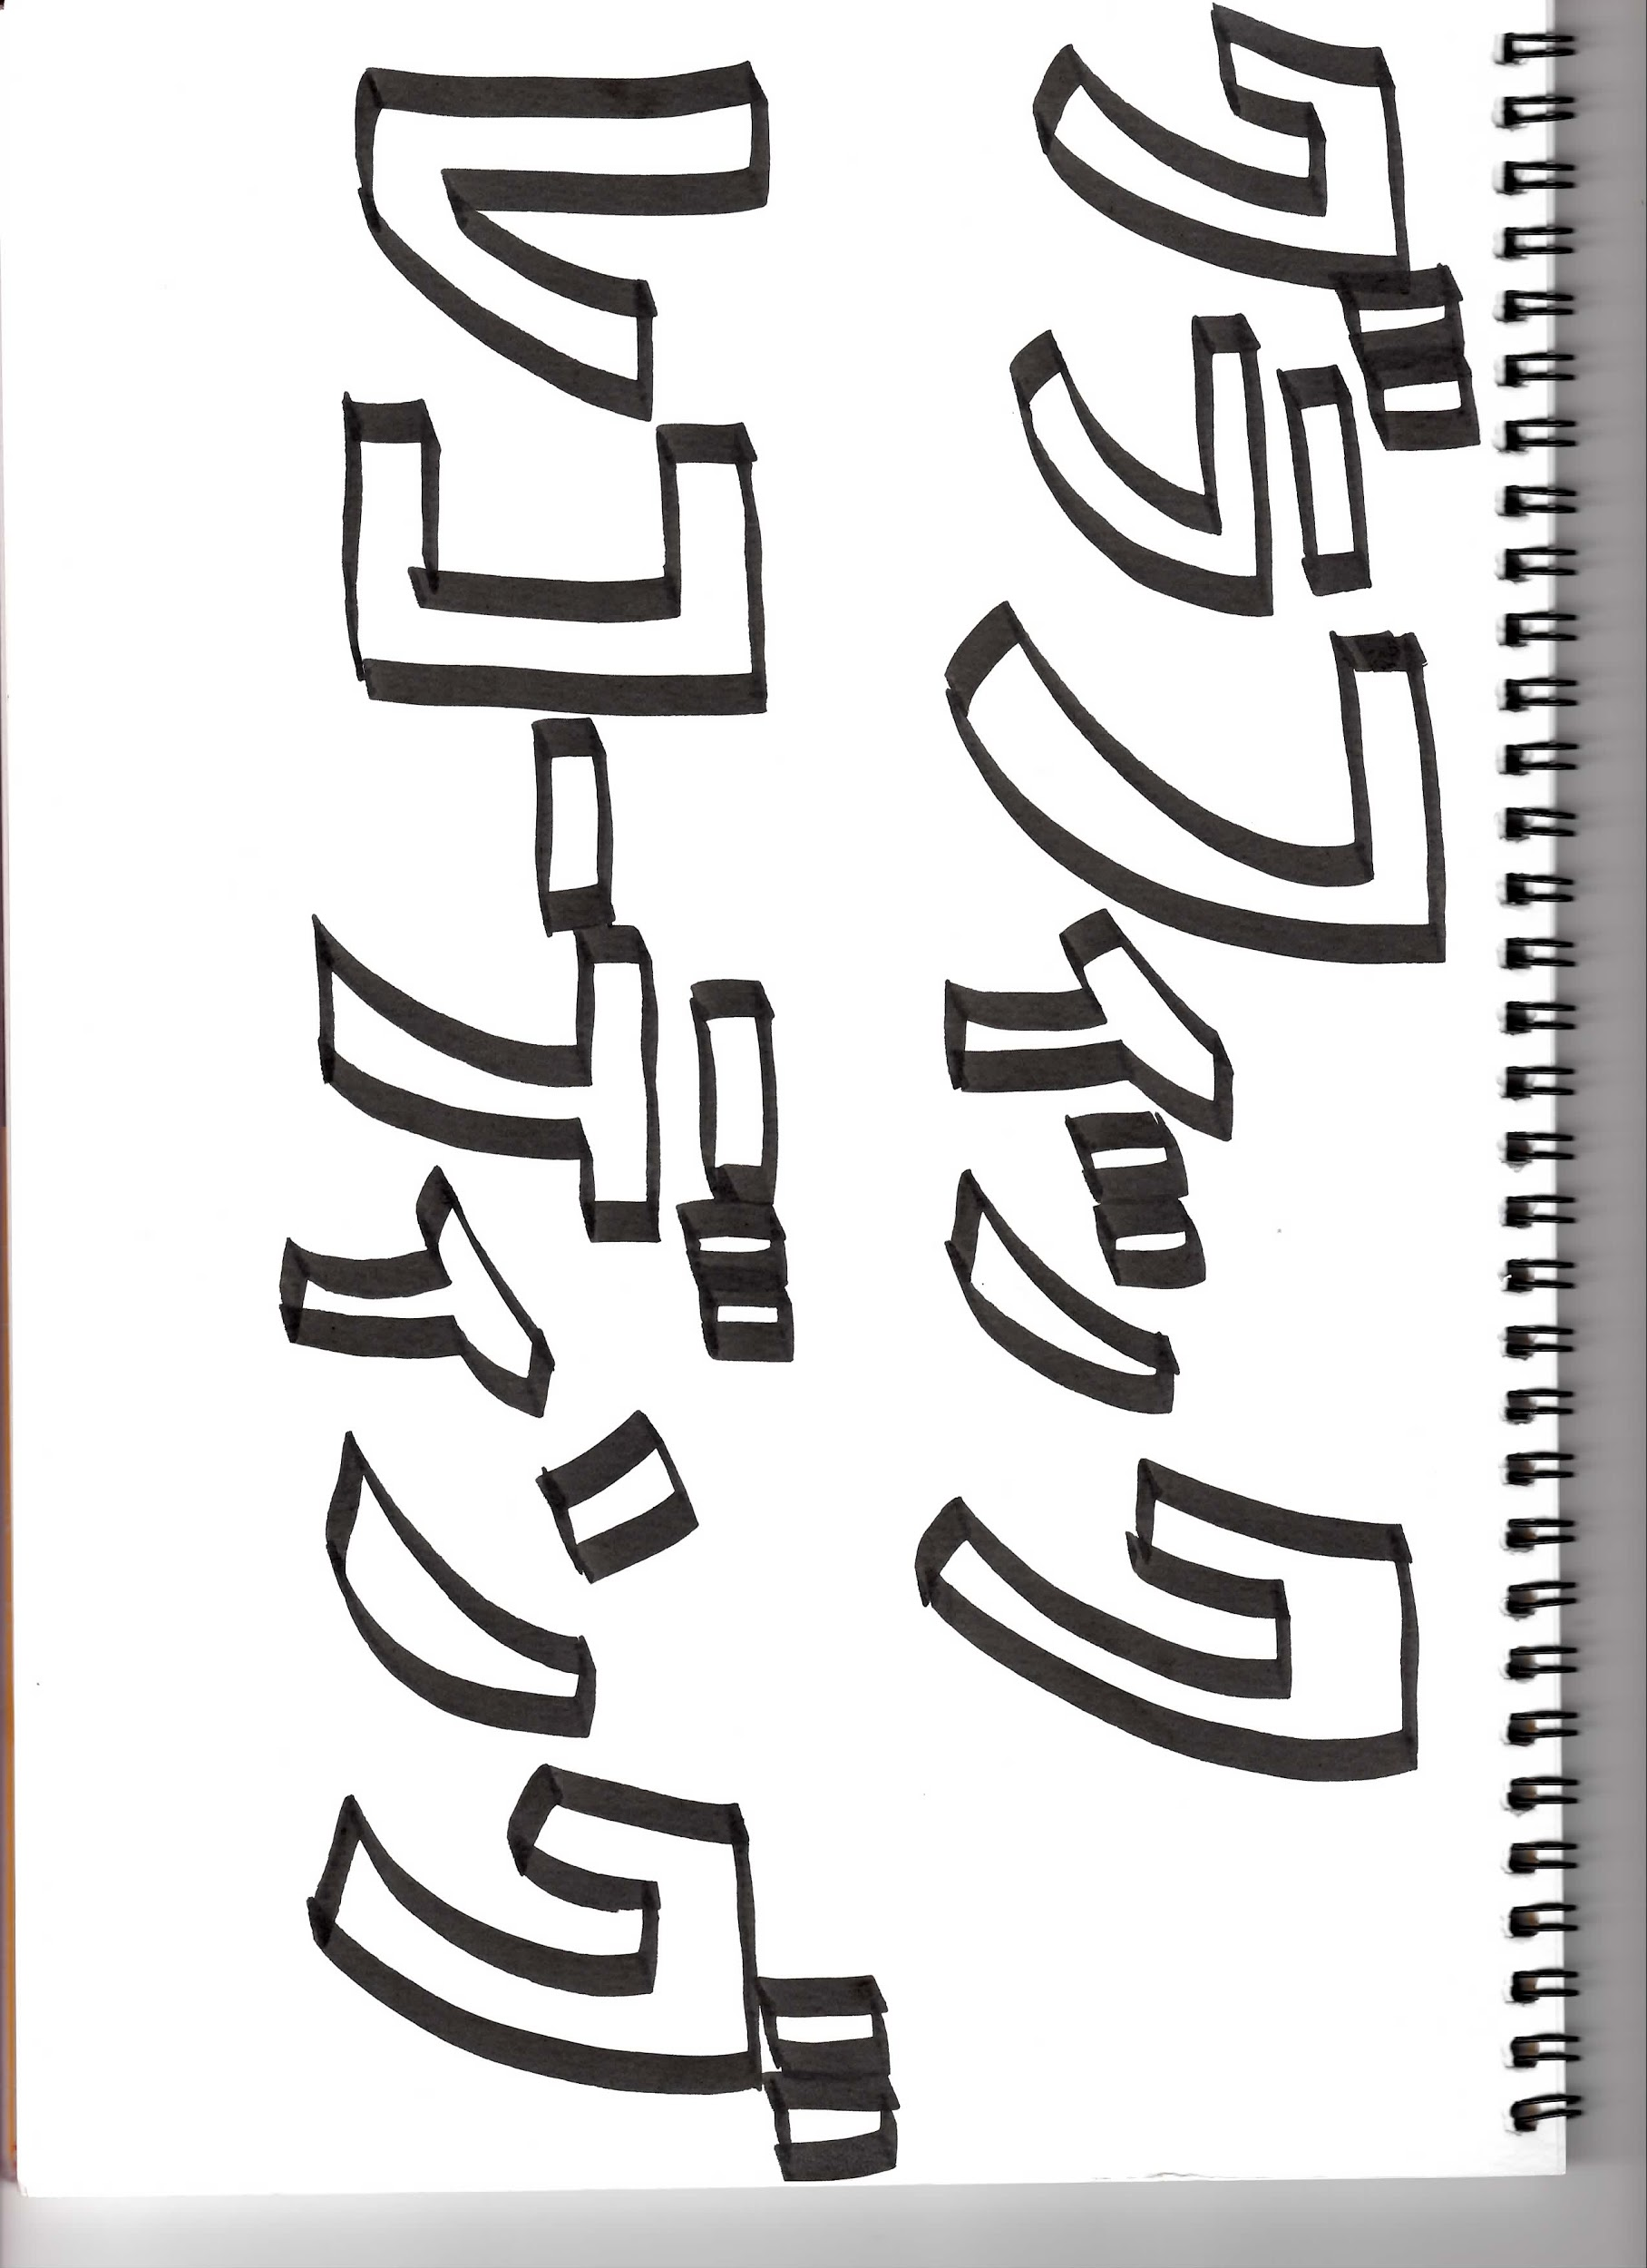 グラフィック
レコーディング